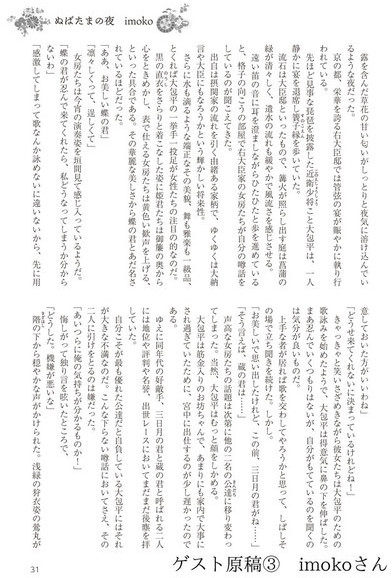 ぬばたまの夜　imoko
露を含んだ草花の甘い匂いがしっとりと夜気に溶け込んでい
るような夜だった。
京の都、栄華を誇る右大臣邸では管弦の宴が賑やかに執り行
われている。
先ほど見事な琵琶を披露した近衛少将こと大包平は、一人
静かに宴を退席し簀子縁を歩いていた。
流石は大臣邸といったもので、篝火が照らし出す庭は菖蒲の
緑が清々しく、遣水の流れも緩やかで風流さを感じさせる。
遠い笛の音に耳を澄ましながらひたひたと歩を進めている
と、格子の向こうの部屋で右大臣家の女房たちが自分の噂話を
しているのが聞こえてきた。
出自は摂関家の流れを引く由緒ある家柄で、ゆくゆくは大納
言や大臣にもなろうかという輝かしい将来性。
さらに水も滴るような端正なその美貌、舞も雅楽も一級品、
とくれば大包平の一挙手一投足が女性たちの注目の的なのだ。
黒の直衣をさらりと着こなした姿に姫君たちは御簾の奥から
心をときめかし、表で仕える女房たちは黄色い歓声を上げる、
といった具合である。その華麗な美しさから蝶の君とあだ名さ
れているほどだった。
「ああ、お美しい蝶の君」
「凛々しくって、逞しくて」
女房たちは今宵の演奏姿を垣間見て感じ入っているようだ。
「蝶の君が忍んで来てくれたら、私どうなってしまうか分から
ないわ」
「感激してしまって歌なんか詠めないに違いないから、先に用
意しておいた方がいいわね」
「どうせ来てくれないに決まっているけれどね！」
きゃっきゃっと笑いさざめきながら彼女たちは大包平のための
歌詠みを始めたようで、大包平は得意気に鼻の下を伸ばした。
まあ忍んでいくつもりはないが、自分がもてているのを聞くの
は気分が良いものだ。
上手な者が居れば歌を交わしてやろうかと思って、しばしそ
の場で立ち聞きを続けた。しかし。
「お美しいで思い出したけれど、この前、三日月の君がね……」
「そう言えば、蔵の君は……」
声高な女房たちの話題は次第に他の二名の公達に移り変わっ
てしまった。当然、大包平はむっと顔をしかめる。
大包平は筋金入りのお坊ちゃんで、あまりにも家内で大事に
され過ぎていたために、宮中に出仕するのが少し遅かったので
ある。
ゆえに同年代の好敵手、三日月の君と蔵の君と呼ばれる二人
には地位や評判や名誉、出世レースにおいてまだまだ後塵を拝
していた。
自分こそが最も優れた公達だと自負している大包平にはそれ
が大きな不満なのだ。こんな下らない噂話においてさえ、その
二人に引けをとるのは嫌だった。
「あいつらに俺の気持ちが分かるものか！」
悔しがって独り言を呟いたところで、
「どうした。機嫌が悪いな」
階の下から穏やかな声がかけられた。浅緑の狩衣姿の鶯丸が
31
ゲスト原稿③　imokoさん